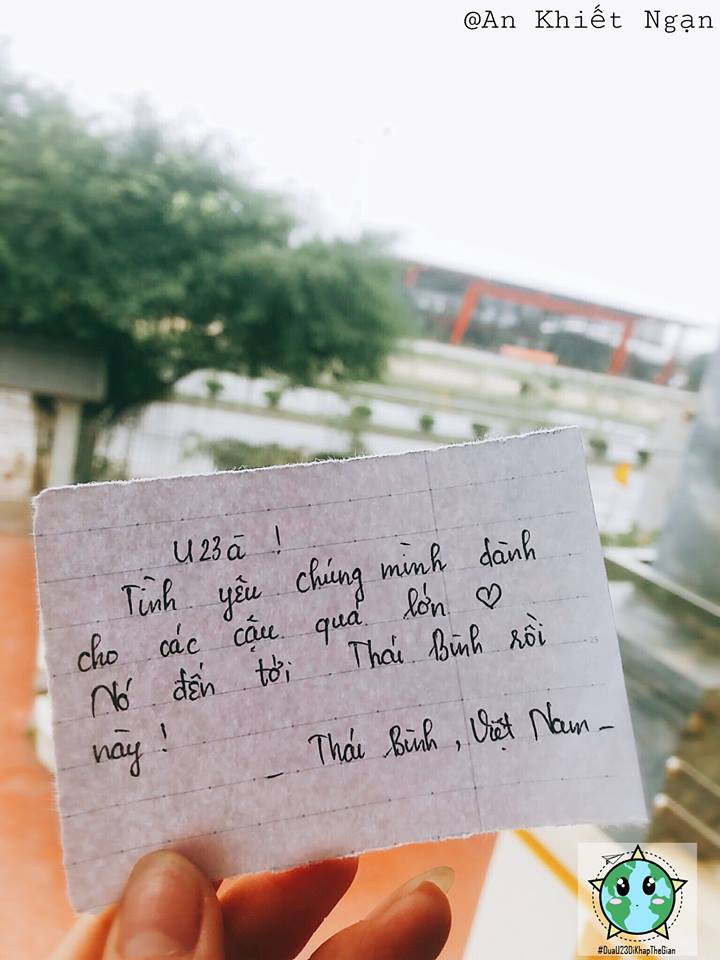 @An Khiết Ngạn
U23 ā !
Tình yêu chúng mình dành
cho các cậu quá lớn ♡
Nó đến tới Thái Bình rồi
này !
_ Thái Bình , Việt Nam _
#DuaU23DiKhapTheGian